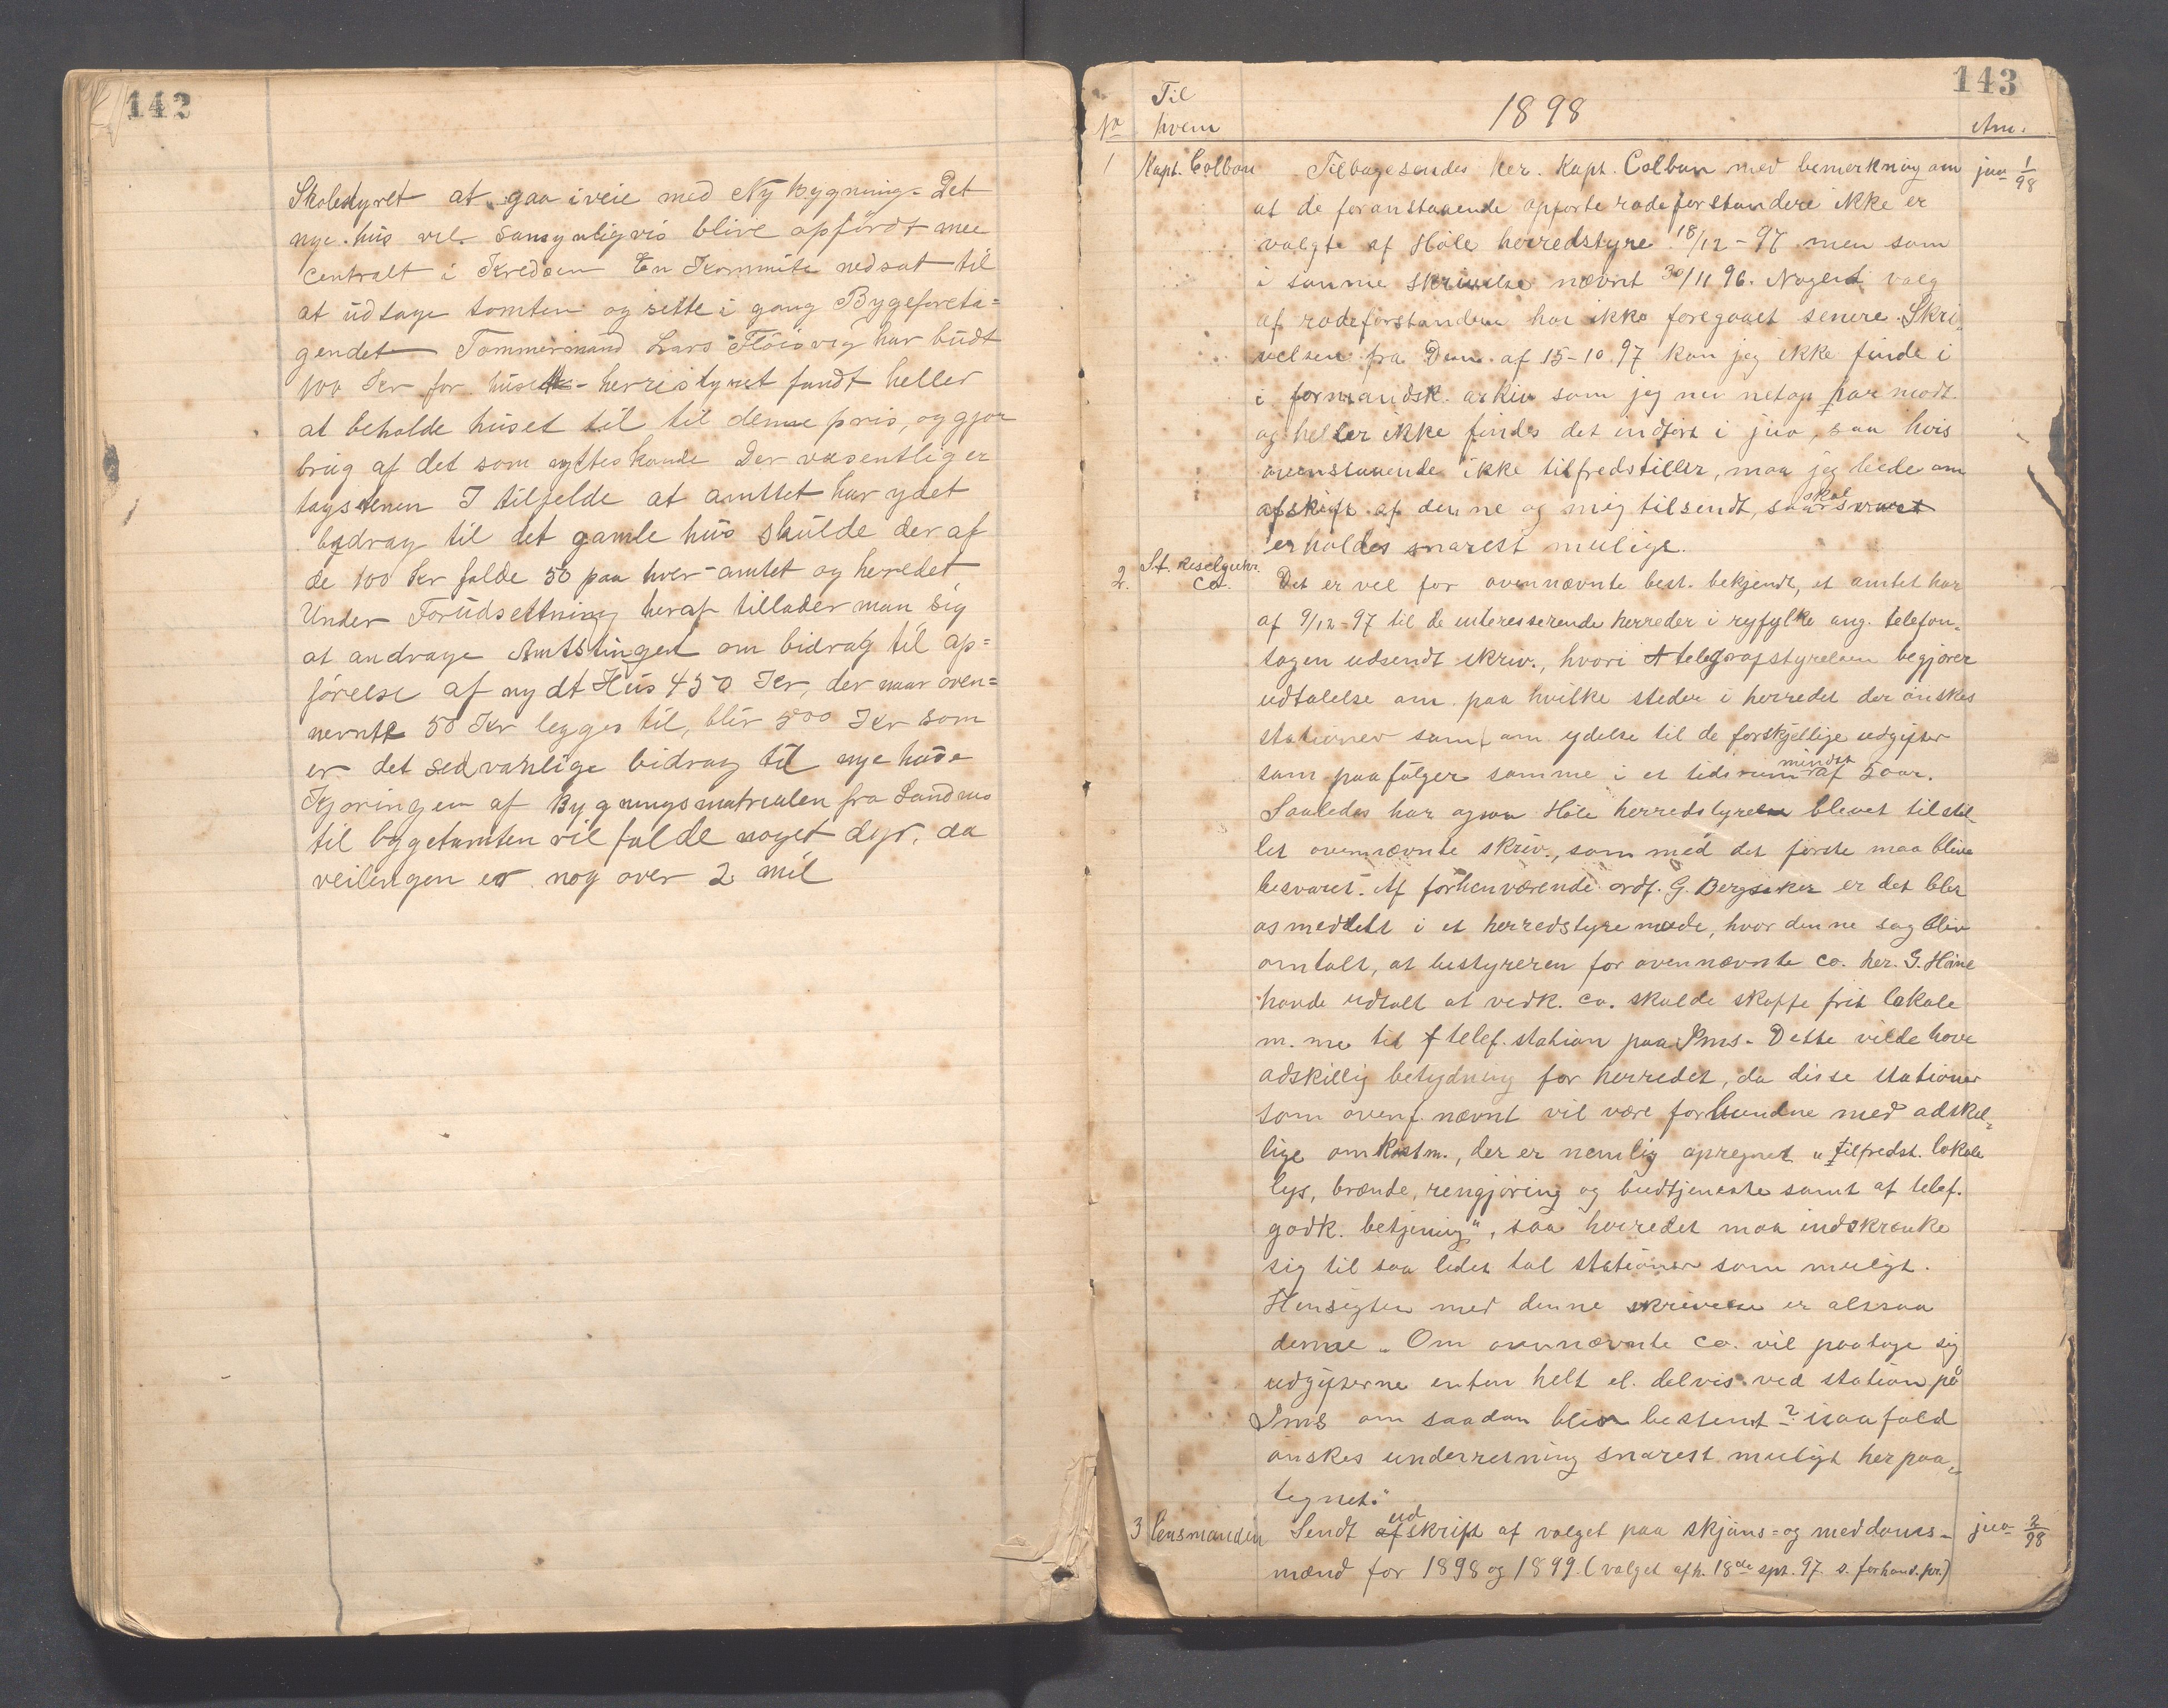 142
Skolestyret at gaa iveie med Ny Bygning. Det
nye hus vil sansynligvis blive opfördt mee
centralt i Kredsen En Kommite nedsat til
at udtage tomten og sette i gang Bygeforeta=
gendet Tømmermand Lars Flöisvig har budt
100 Kr for huset - herristyret fandt heller
at beholde huset til til denne pris, og gjør
brug af det som nyttes kande Der væsentlig er
tagstenen I tilfelde at amtet har ydet
bidrag til det gamle hus skulde der af
de 100 Kr falde 50 paa hver - amtet og herredet
Under Forudsettning heraf tillader man sig
at andrage Amtstinget om bidrag til op=
førelse af nydt Hus 450 Kr, der naar oven=
nevnte 50 Kr legges til, blir 500 Kr som
er det sedvanlige bidrag til nye huse
Kjøringen af Bygningsmatrialen fra Sandnes
til bygetomten vil falde noget dyr, da
veilengen er nog over 2 mil
143
Til
1898
No hvem Anm.
1 Kapt. Colban Tilbagesendes her. Kapt. Colban med bemerkning om jno 1/98
at de foranstaaende opførte rodeforstandere ikke er
valgte af Höle herredstyre 18/12-97 men som
i samme skrivelse nævnt 30/11 96. Noget valg
af rodeforstandere har ikke foregaaet senere. Skri„
velsen fra Dem af 15-10 97 kan jeg ikke finde i
i formandsk. arkiv som jeg nu netop har modt.
og heller ikke findes det indført i jno, saa hvis
ovenstaaende ikke tilfredstiller, maa jeg bede om
afskift af denne og mig tilsendt, saa skal svaret
erholdes snarest mulige.
2. St. Kiselguhr Co. Det er vel for ovennævnte best. bekjendt, at amtet har
af 9/12-97 til de interesserende herreder i ryfylke ang. telefon„
sagen udsendt skriv., hvori telegrafstyrelsen begjærer
udtalelse om paa hvilke steder i herredet der önskes
stationer samt om ydelse til de forskjellige udgifter
som paafölger samme i et tidsrum af mindst 5 aar.
Saaledes har ogsaa Höle herredstyre blevet tilstil„
let ovennævnte skriv., som med det første maa blive
besvaret. Af forhenværende ordf. G. Bergsaker er det blet
os meddelt i et herredstyremøde, hvor denne sag blev
omtalt, at bestyreren for ovennævnte Co. her. G. Heine
havde udtalt at vedk. Co. skulde skaffe frit lokale
m. m. til telef. station paa Ims. Dette vilde have
adskillig betydning for herredet, da disse stationer
som ovenf. nævnt vil være forbundne med adskel„
lige omkostn., der er nemlig opregnet „tilfredst. lokale
lys, brænde, rengjøring og budtjeneste samt af telef.
godk. betjening", saa herredet maa indskrænke
sig til saa lidet tal stationer som muligt.
Hensigten med denne skrivelse er altsaa
denne „Om ovennævnte Co. vil paatage sig
udgifterne enten helt el. delvis ved station på
Ims om saadan bliver bestemt? isaafald
önskes underretning snarest muligt herpaa„
tegnet."
3 Lensmanden Sendt udskrift af valget paa skjöns= og meddoms- jno 2/98
mænd for 1898 og 1899. (valget afh. 18de spt. 97 s. forhand. pr.)